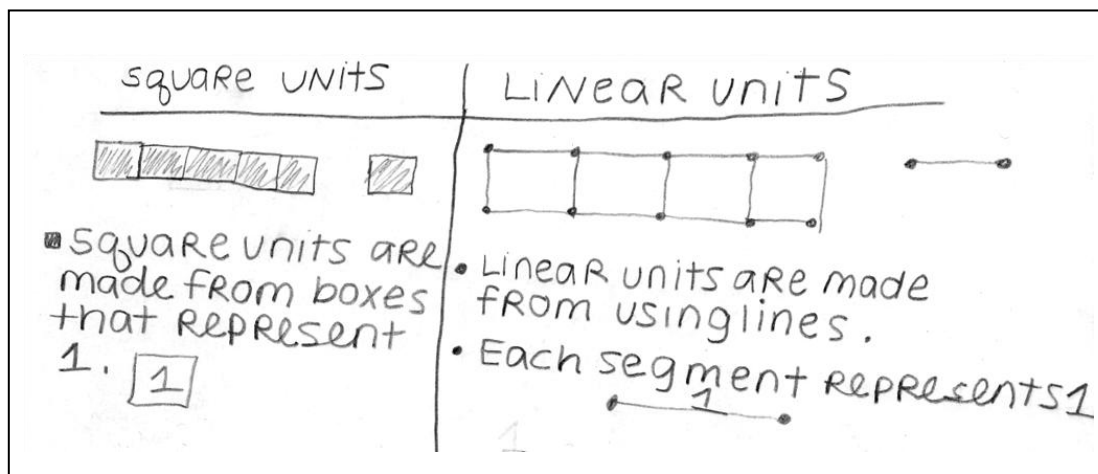 square units
Linear units
square units are
made from boxes
that represent
1.
1
Linear units are made
from using lines.
Each segment represents 1
1